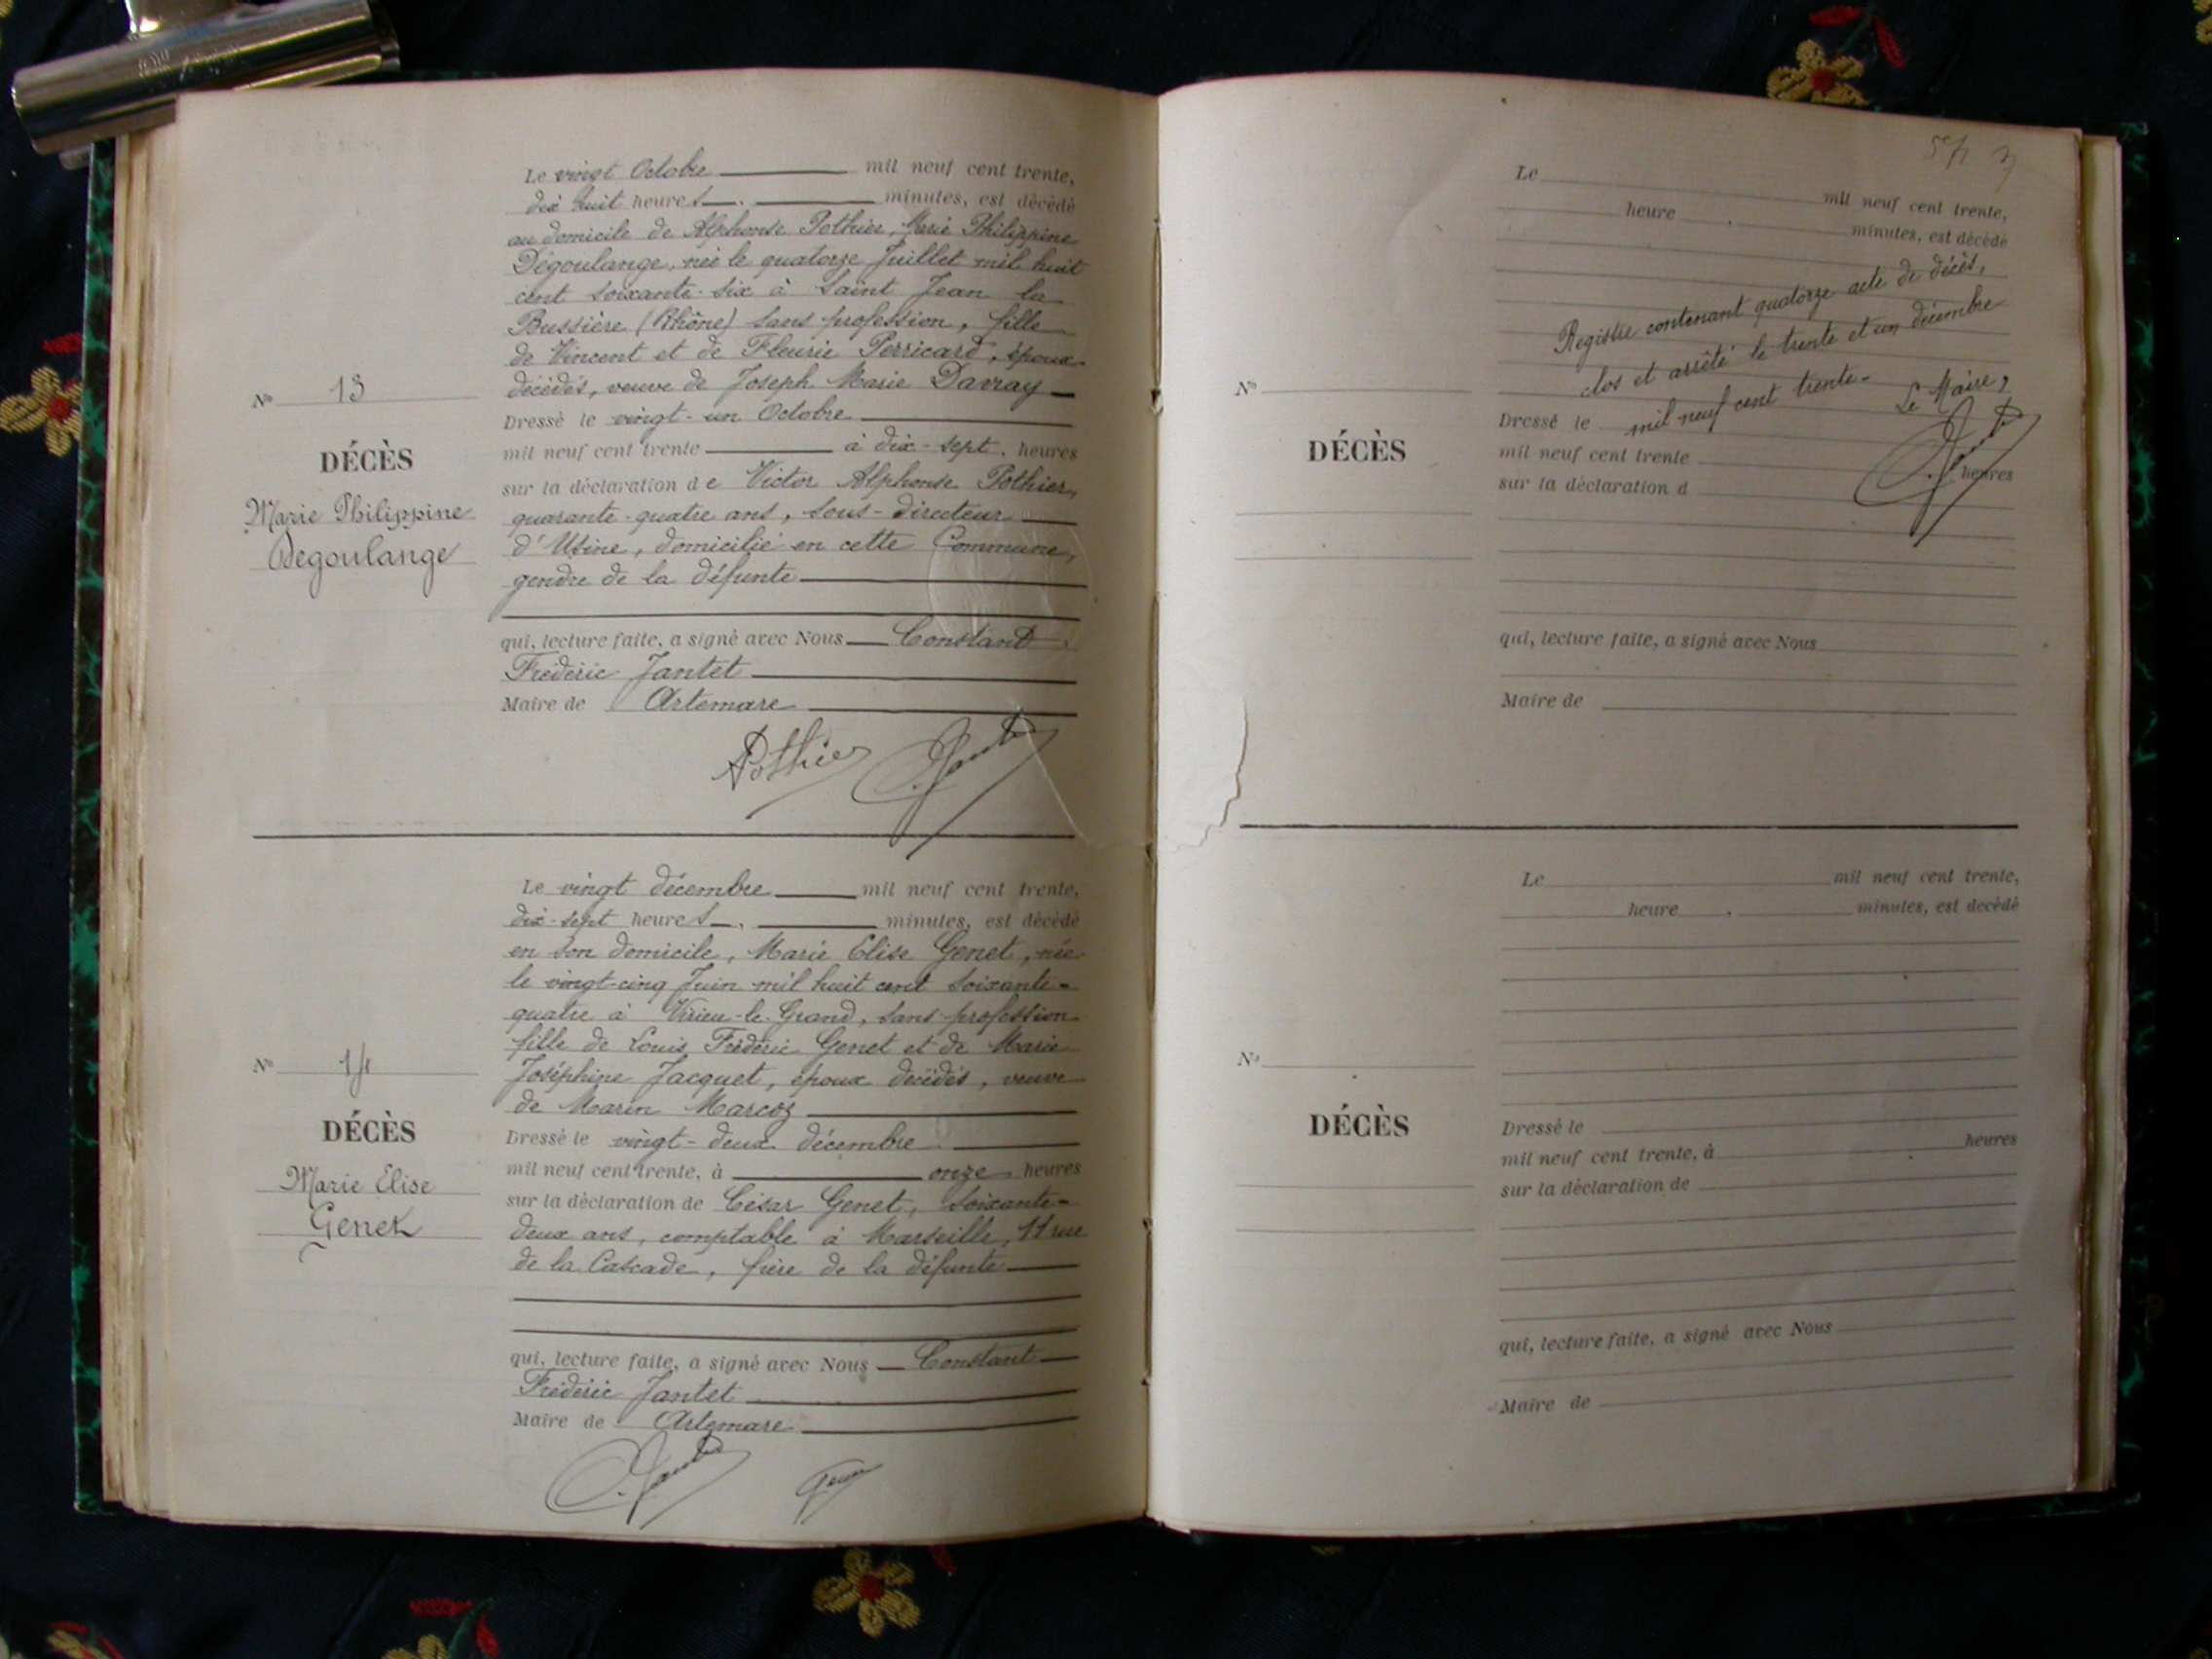 Le vingt Octobre mil neuf cent trente,
dix huit heures . minutes, est décédé
au domicile de Alphonse Pothier, Marie Philippine
Dégoulange, née le quatorze Juillet mil huit
cent soixante-six à Saint Jean la
Bussière (Rhône) sans profession, fille
de Vincent et de Fleurie Perricard, époux
décédés, veuve de Joseph Marie Davray
Nº 13
DÉCÈS
Marie Philippine
Dégoulange
Dressé le vingt-un Octobre
mil neuf cent trente à dix-sept. heures
sur la déclaration de Victor Alphonse Pothier,
quarante-quatre ans, sous-directeur
d'Usine, domicilié en cette Commune,
gendre de la défunte
qui, lecture faite, a signé avec Nous Constant
Frédéric Jantet
Maire de Artemare
Pothier Jantet
Le vingt décembre mil neuf cent trente,
dix-sept heures . minutes, est décédé
en son domicile, Marie Elise Genet, née
le vingt-cinq Juin mil huit cent soixante-
quatre à Virieu-le-Grand, sans profession
fille de Louis Frédéric Genet et de Marie
Joséphine Jacquet, époux décédés, veuve
de Marin Marcoz
Nº 14
DÉCÈS
Marie Elise
Genet
Dressé le vingt-deux décembre
mil neuf cent trente, à onze heures
sur la déclaration de César Genet, soixante-
deux ans, comptable à Marseille, 11 rue
de la Cascade, frère de la défunte
qui, lecture faite, a signé avec Nous Constant
Frédéric Jantet
Maire de Artemare
Jantet Genet
Le mil neuf cent trente,
heure . minutes, est décédé
Registre contenant quatorze acte de décès,
clos et arrêté le trente et un décembre
mil neuf cent trente-
Le Maire,
Jantet
Nº
DÉCÈS
Dressé le
mil neuf cent trente heures
sur la déclaration d
qui, lecture faite, a signé avec Nous
Maire de
Le mil neuf cent trente,
heure , minutes, est decédé
Nº
DÉCÈS
Dressé le
mil neuf cent trente, à heures
sur la déclaration de
qui, lecture faite, a signé avec Nous
Maire de